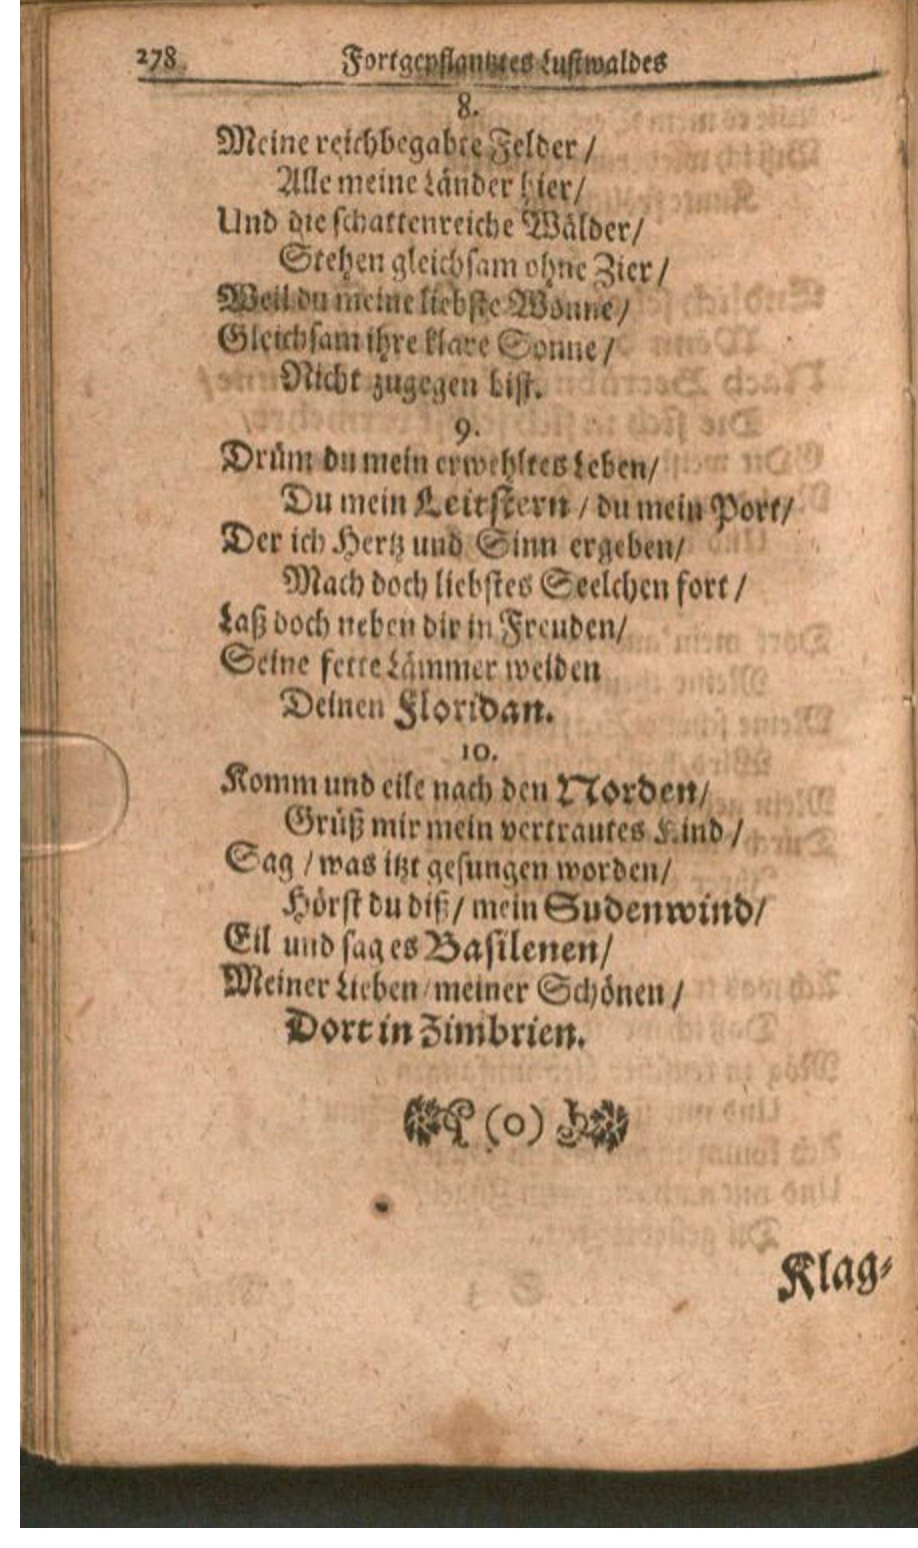 278 Fortgepflantztes Lustwaldes
8.
Meine reichbegabte Felder /
Alle meine Länder hier /
Und die schattenreiche Wälder /
Stehen gleichsam ohne Zier /
Weil du meine liebste Wonne /
Gleichsam ihre klare Sonne /
Nicht zugegen bist.
9.
Drüm du mein erwehltes Leben /
Du mein Leitstern / du mein Port /
Der ich Hertz und Sinn ergeben /
Mach doch liebstes Seelchen fort /
Laß doch neben dir in Freuden /
Seine fette Lämmer weiden
Deinen Floridan.
10.
Komm und eile nach den Norden /
Grüß mir mein vertrautes Kind /
Sag / was itzt gesungen worden /
Hörst du diß / mein Sudenwind /
Eil und sag es Basilenen /
Meiner Lieben / meiner Schönen /
Dort in Zimbrien.
(o)
Klag⸗